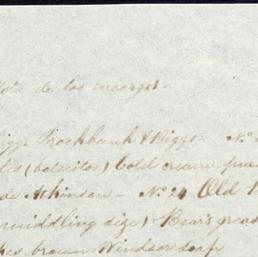 Nota de los encargos.
Riggs Brockbank & Riggs - No.
(botecitos) Cold cream, 
de Atkinson - No. 24 Old
middling size) Bear's greas
kes brown Windsor soap